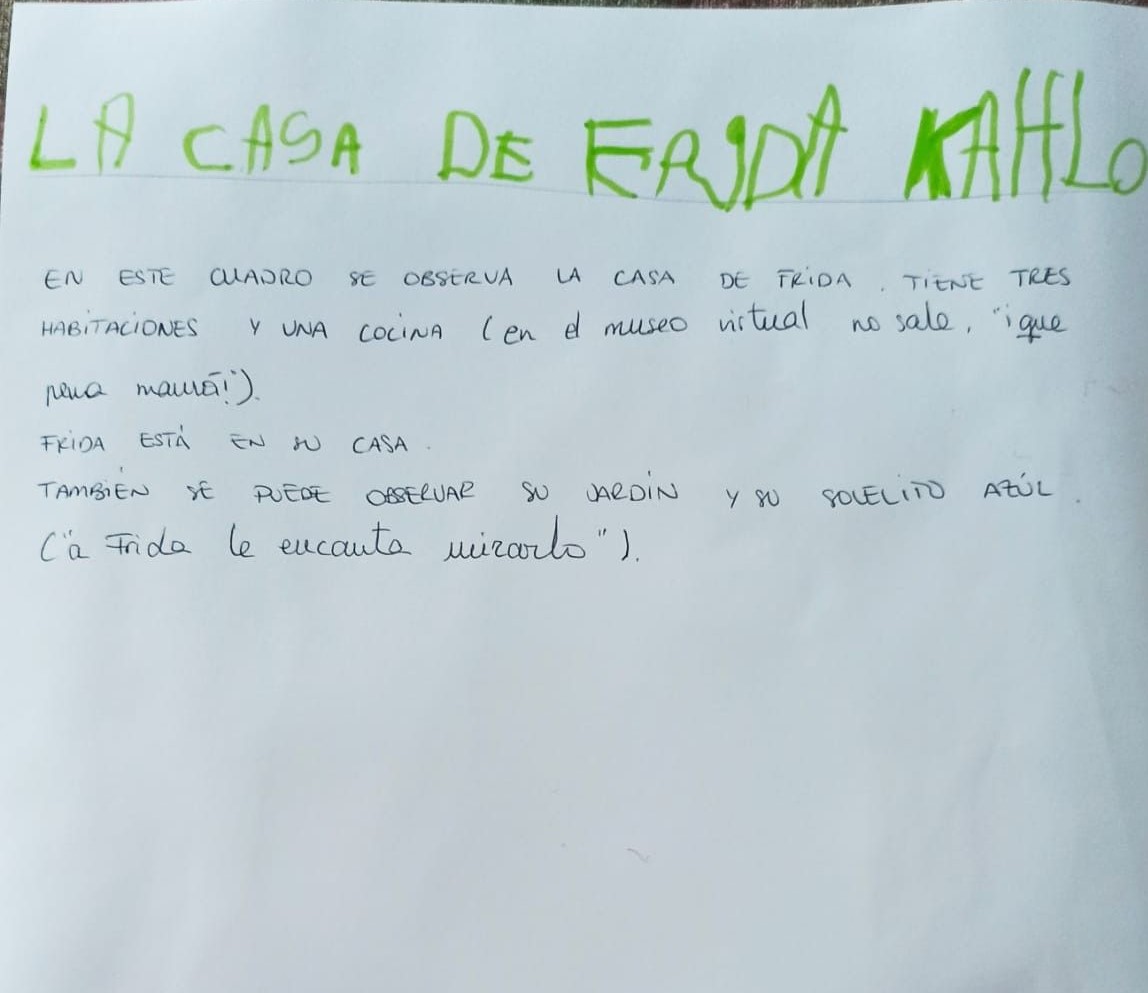 LA CASA DE FRIDA KAHLO
EN ESTE CUADRO SE OBSERVA LA CASA DE FRIDA. TIENE TRES
HABITACIONES Y UNA COCINA (en el museo virtual no sale, "¡que
pena mamá!").
FRIDA ESTÁ EN SU CASA.
TAMBIÉN SE PUEDE OBSERVAR SU JARDÍN Y SU SOLECITO AZÚL.
("a Frida le encanta mirarlo").